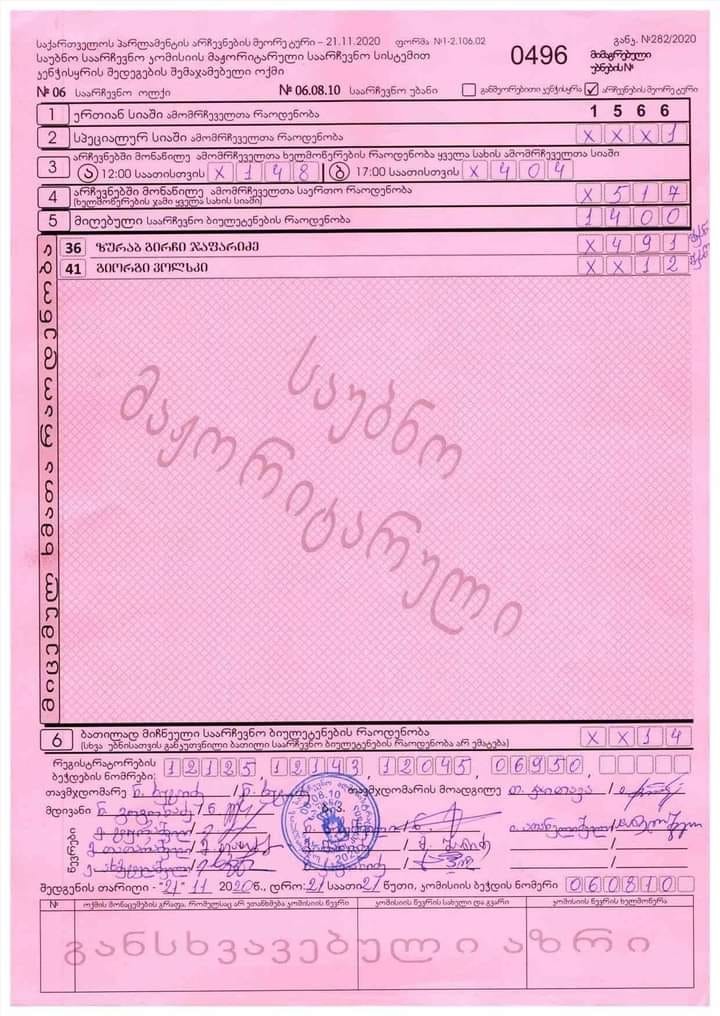 საქართველოს პარლამენტის არჩევნების მეორე ტური – 21.11.2020 ფორმა №1-2.106.02 განკ. №282/2020
საუბნო საარჩევნო კომისიის მაჟორიტარული საარჩევნო სისტემით 0496 მიმაგრებული
კენჭისყრის შედეგების შემაჯამებელი ოქმი უბნების №
№ 06 საარჩევნო ოლქი № 06.08.10 საარჩევნო უბანი განმეორებითი კენჭისყრა ✓ არჩევნების მეორე ტური
1 ერთიან სიაში ამომრჩეველთა რაოდენობა 1 5 6 6
2 სპეციალურ სიაში ამომრჩეველთა რაოდენობა X X X 1
3 არჩევნებში მონაწილე ამომრჩეველთა ხელმოწერების რაოდენობა ყველა სახის ამომრჩეველთა სიაში
ა 12:00 საათისთვის X 1 4 8 ბ 17:00 საათისთვის X 4 0 4
4 არჩევნებში მონაწილე ამომრჩეველთა საერთო რაოდენობა X 5 1 7
(ხელმოწერების ჯამი ყველა სახის სიაში)
5 მიღებული საარჩევნო ბიულეტენების რაოდენობა 1 4 0 0
მიცემულ ხმათა რაოდენობა
36 ზურაბ გირჩი ჯაფარიძე X 4 9 1
41 გიორგი ვოლსკი X X 1 2
საუბნო
მაჟორიტარული
6 ბათილად მიჩნეული საარჩევნო ბიულეტენების რაოდენობა X X 1 4
(სხვა უბნისათვის განკუთვნილი ბათილი საარჩევნო ბიულეტენების რაოდენობა არ ემატება)
რეგისტრატორების
ბეჭდების ნომრები: 12125, 12143, 12045, 06950,
თავმჯდომარე თავმჯდომარის მოადგილე
მდივანი
წევრები
შედგენის თარიღი - "21" 11 2020წ., დრო: 21 საათი 21 წუთი, კომისიის ბეჭდის ნომერი 060810
№ ოქმის მონაცემების გრაფა, რომელსაც არ ეთანხმება კომისიის წევრი კომისიის წევრის სახელი და გვარი კომისიის წევრის ხელმოწერა
განსხვავებული აზრი